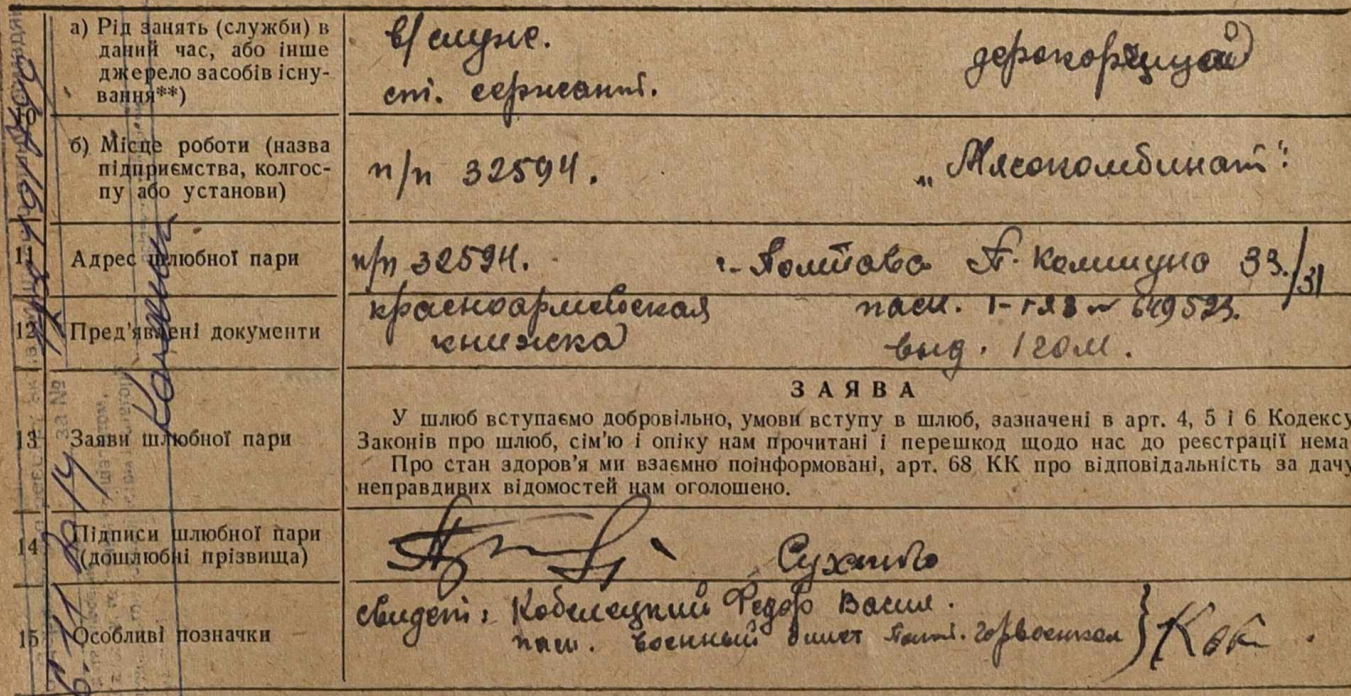 а) Рід занять (служби) в
даний час, або інше
джерело засобів існу-
вання**)
в/служ.
ст. сержант.
б) Місце роботи (назва
підприємства, колгос-
пу або установи)
п/п 32594.
„Мясокомбинат“
11 Адрес шлюбної пари
п/п 32594.
г. Полтава П. Коммуна 33/31
12 Пред'явлені документи
красноармейская
книжка
выд. 1 гом.
13 Заяви шлюбної пари
ЗАЯВА
У шлюб вступаємо добровільно, умови вступу в шлюб, зазначені в арт. 4, 5 і 6 Кодексу
Законів про шлюб, сім'ю і опіку нам прочитані і перешкод щодо нас до реєстрації нема
Про стан здоров'я ми взаємно поінформовані, арт. 68 КК про відповідальність за дачу
неправдивих відомостей нам оголошено.
14 Підписи шлюбної пари
(дошлюбні прізвища)
15 Особливі позначки
свидет: Кобелецкий Федор Васил.
пасп. военный билет Полт. Горвоенком